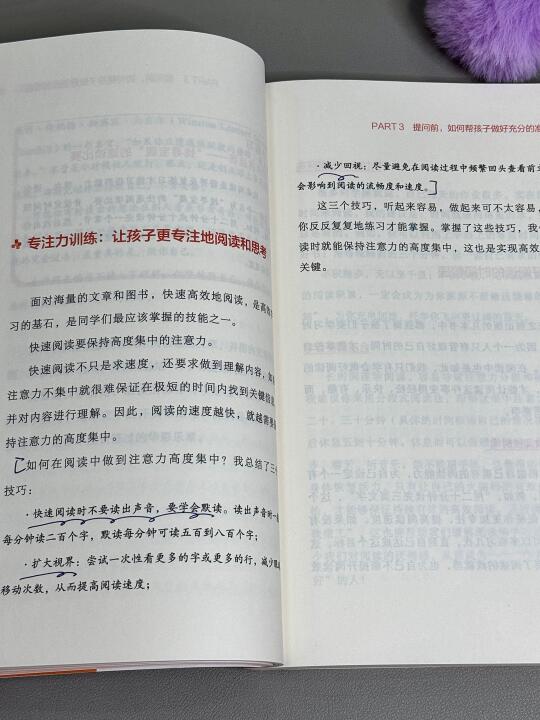 专注力训练：让孩子更专注地阅读和思考
面对海量的文章和图书，快速高效地阅读，是高
习的基石，是同学们最应该掌握的技能之一。
快速阅读要保持高度集中的注意力。
快速阅读不只是求速度，还要求做到理解内容，如
注意力不集中就很难保证在极短的时间内找到关键信
并对内容进行理解。因此，阅读的速度越快，就越需要
持注意力的高度集中。
如何在阅读中做到注意力高度集中？我总结了三
技巧：
·快速阅读时不要读出声音，要学会默读。读出声音时一
每分钟读二百个字，默读每分钟可读五百到八百个字；
·扩大视界：尝试一次性看更多的字或更多的行，减少眼
移动次数，从而提高阅读速度；
PART 3 提问前，如何帮孩子做好充分的准
·减少回视：尽量避免在阅读过程中频繁回头查看前
会影响到阅读的流畅度和速度。
这三个技巧，听起来容易，做起来可不太容易，
你反反复复地练习才能掌握。掌握了这些技巧，我
读时就能保持注意力的高度集中，这也是实现高效
关键。